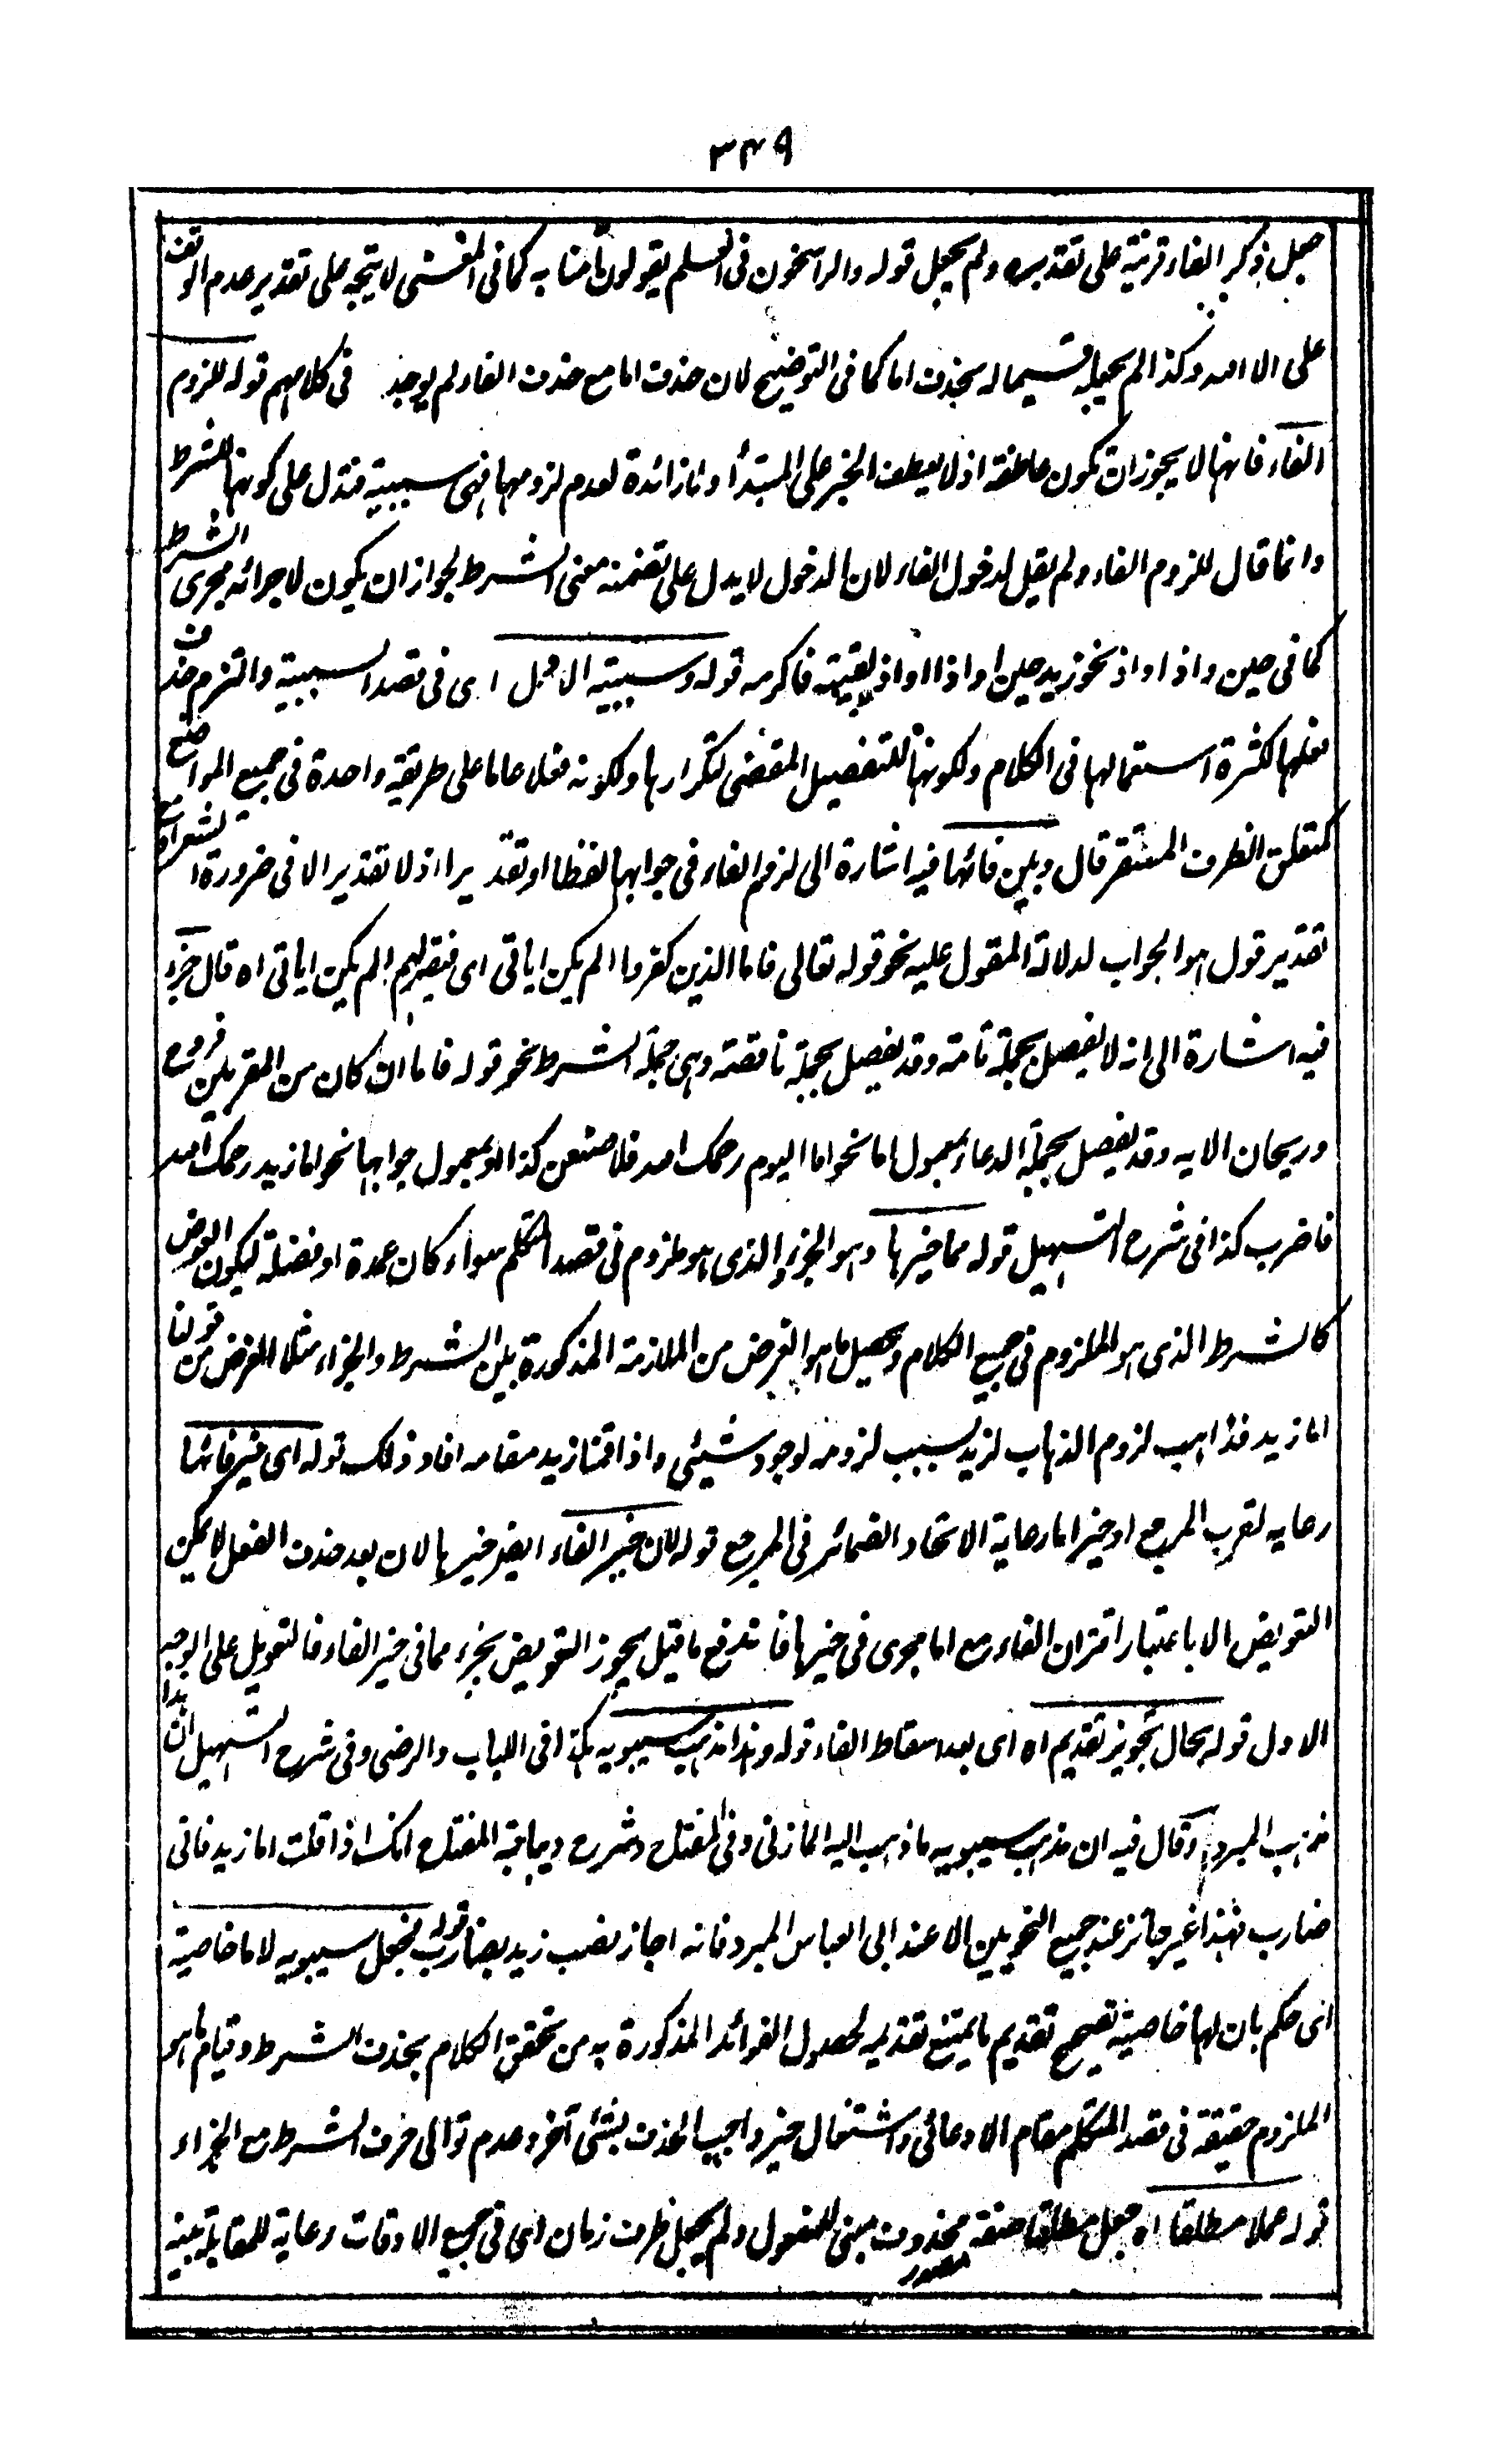 ٣٤٩
جعل ذكر الفاء قرينة على تقديره ولم يجعل قوله والراسخون فى العلم يقولون آمنا به كما فى المغنى لا يتجه على تقدير عدم الوقف
على الا الله وكذا لم يجعله قسيما له بحذف اما كما فى التوضيح لان حذف اما مع حذف الفاء لم يوجد فى كلامهم قوله للزوم
الفاء فانها لا يجوز ان تكون عاطفة اذ لا يعطف الخبر على المبتدأ ولا زائدة لعدم لزومها فهى سببية فتدل على كونها للشرط
وانما قال للزوم الفاء ولم يقل لدخول الفاء لان الدخول لا يدل على تضمنه معنى الشرط لجواز ان يكون لاجرائه مجرى الشرط
كما فى حين واذا واذ نحو زيد حين او اذا او اذ لقيته فاكرمه قوله وسببية الاول اى فى قصد السببية والتزم حذف
فعلها لكثرة استعمالها فى الكلام ولكونها للتفصيل المقتضى لتكرارها ولكونه فعلا عاما على طريقة واحدة فى جميع المواضع
كمتعلق الظرف المستقر قال وبين فائها فيه اشارة الى لزوم الفاء فى جوابها لفظا او تقديرا اذ لا تقدير الا فى ضرورة الشعر او مع
تقدير قول هو الجواب لدلالة المقول عليه نحو قوله تعالى فاما الذين كفروا الم يكن اياتى اى فيقر لهم الم يكن اياتى اه قال جزء
فيه اشارة الى انه لا يفصل بجملة تامة وقد يفصل بجملة ناقصة وهى جملة الشرط نحو قوله فاما ان كان من المقربين فروح
وريحان الايه وقد يفصل بجملة الدعاء بمعمول اما نحو اما اليوم رحمك الله فلا تصنعن كذا او لمعمول جوابها نحو اما زيد رحمك الله
فاضرب كذا فى شرح التسهيل قوله مما فى حيزها وهو الجزء الذى هو ملزوم فى قصد المتكلم سواء كان عمدة او فضلة ليكون العوض
كالشرط الذى هو الملزوم فى جميع الكلام وحصيل ما هو الغرض من الملازمة المذكورة بين الشرط والجزاء مثلا الغرض من قولنا
اما زيد فذاهب لزوم الذهاب لزيد بسبب لزومه لوجود شيئى واذا اقمنا زيد مقامه افاد ذلك قوله اى حيز فائها
رعايه لقرب المرجع او حيز اما رعاية الاتحاد الضمائر فى المرجع قوله لان حيز الفاء ايضر حيزها لان بعد حذف الفعل لا يمكن
التعويض الا باعتبار اقتران الفاء مع اما مجرى فى حيزها فاندفع ما قيل يجوز التعويض بجزء مما فى حيز الفاء فالتعويل على الوجه
الاول قوله بحال تجويز تقديم اه اى بعد اسقاط الفاء قوله وهذا مذهب سيبويه هكذا فى اللباب والرضى وفى شرح التسهيل ان هذا
مذهب المبرد وقال فيه ان مذهب سيبويه ما ذهب اليه المازنى وفى المفتاح وشرح ديباجة المفتاح انك اذا قلت اما زيد فانى
ضارب فهذا غير جائز عند جميع النحويين الا عند ابى العباس المبرد فانه اجاز نصب زيد بضارب قوله فجعل سيبويه لاما خاصية
اى حكم بان لها خاصية تصحيح تقديم ما يمتنع تقديمه لحصول الفوائد المذكورة به من تحقق الكلام بحذف الشرط وقيام ما هو
الملزوم حقيقة فى قصد المتكلم مقام الادعائى واشتغال حيز واجب الحذف بشئى آخر وعدم توالى حرف الشرط مع الجزاء
قوله عملا مطلقا اه جعل مطلقا صفة مصدر محذوف مبنى للمفعول ولم يجعل ظرف زمان اى فى جميع الاوقات رعاية للمقابلة بينه